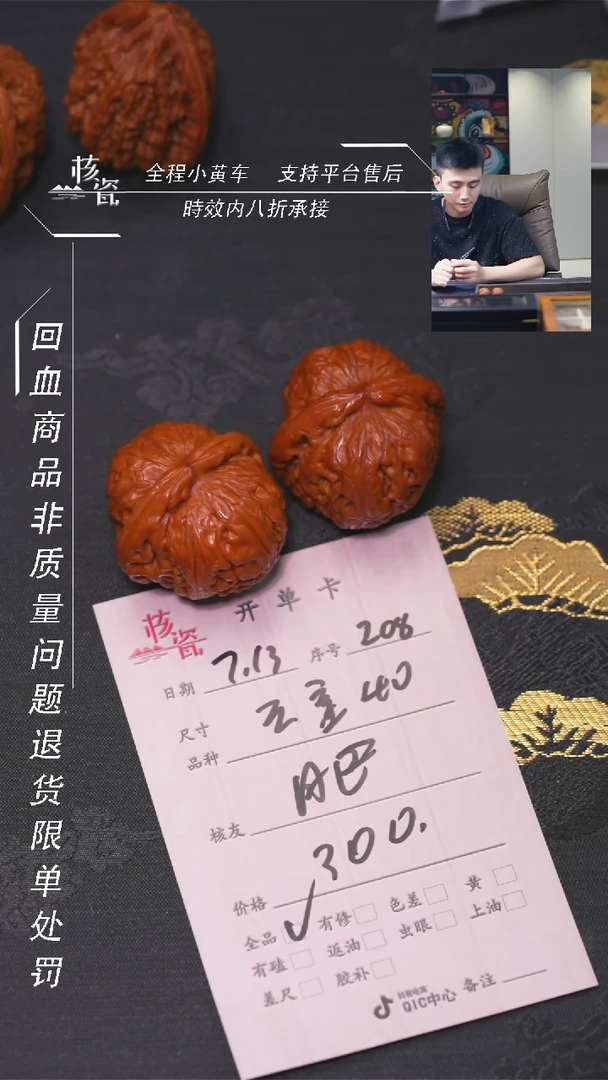 核瓷
全程小黄车 支持平台售后
時效内八折承接
回血商品非质量问题退货限单处罚
核瓷
开单卡
日期 7.13 序号 208
尺寸 40
品种
核友
价格 300.
全品 ✓ 有修 色差 黄
有磕 返油 虫眼 上油
差尺 胶补
抖音电商
QIC中心 备注